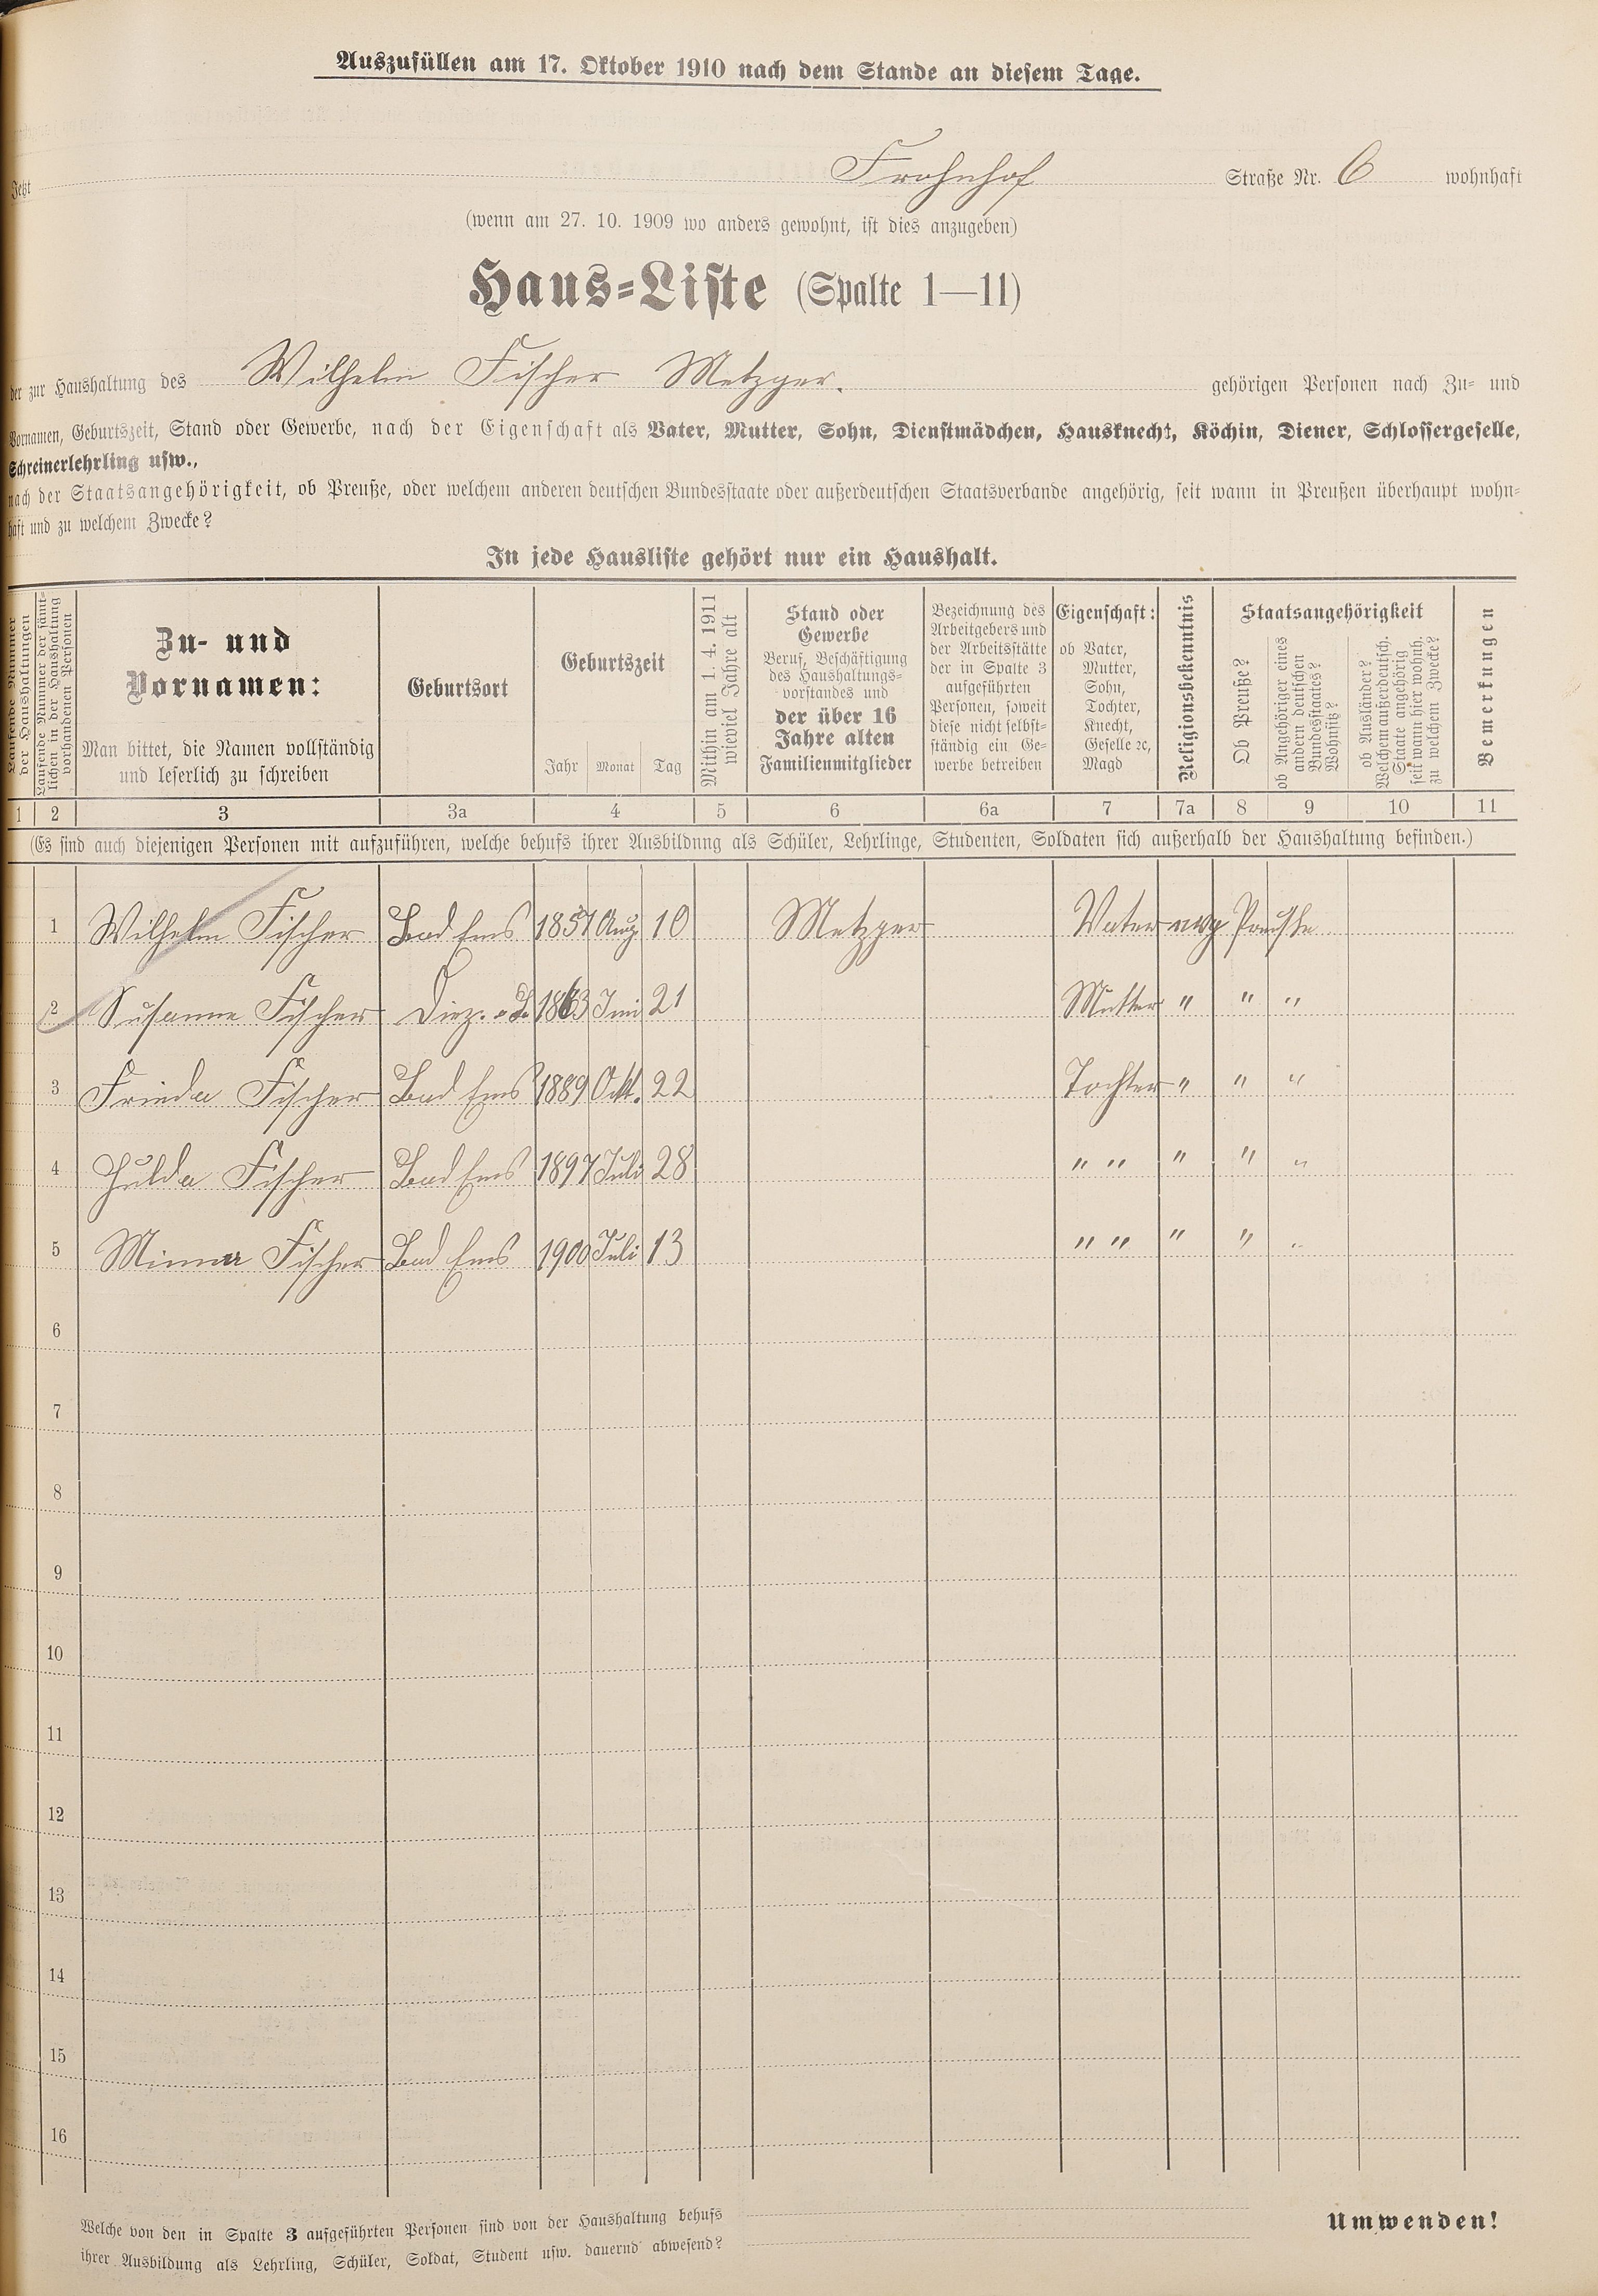 Auszufüllen am 17. Oktober 1910 nach dem Stande an diesem Tage.
Jetzt Frohnhof Straße Nr. 6 wohnhaft
(wenn am 27. 10. 1909 wo anders gewohnt, ist dies anzugeben)
Haus-Liste (Spalte 1—11)
der zur Haushaltung des Wilhelm Fischer Metzger. gehörigen Personen nach Zu- und
Vornamen, Geburtszeit, Stand oder Gewerbe, nach der Eigenschaft als Vater, Mutter, Sohn, Dienstmädchen, Hausknecht, Köchin, Diener, Schlossergeselle,
Schreinerlehrling usw.,
nach der Staatsangehörigkeit, ob Preuße, oder welchem anderen deutschen Bundesstaate oder außerdeutschen Staatsverbande angehörig, seit wann in Preußen überhaupt wohn-
haft und zu welchem Zwecke?
In jede Hausliste gehört nur ein Haushalt.
Laufende Nummer
der Haushaltungen
Laufende Nummer der sämt-
lichen in der Haushaltung
vorhandenen Personen
Zu- und
Vornamen:
Man bittet, die Namen vollständig
und leserlich zu schreiben
Geburtsort
Geburtszeit
Jahr Monat Tag
Mithin am 1. 4. 1911
wieviel Jahre alt
Stand oder
Gewerbe
Beruf, Beschäftigung
des Haushaltungs-
vorstandes und
der über 16
Jahre alten
Familienmitglieder
Bezeichnung des
Arbeitgebers und
der Arbeitsstätte
der in Spalte 3
aufgeführten
Personen, soweit
diese nicht selbst-
ständig ein Ge-
werbe betreiben
Eigenschaft:
ob Vater,
Mutter,
Sohn,
Tochter,
Knecht,
Geselle ꝛc,
Magd
Religionsbekenntnis
Staatsangehörigkeit
Ob Preuße?
ob Angehöriger eines
andern deutschen
Bundesstaates?
Wohnsitz?
ob Ausländer?
Welchem außerdeutsch.
Staate angehörig
seit wann hier wohnh.
zu welchem Zwecke?
Bemerkungen
1 2 3 3a 4 5 6 6a 7 7a 8 9 10 11
(Es sind auch diejenigen Personen mit aufzuführen, welche behufs ihrer Ausbildung als Schüler, Lehrlinge, Studenten, Soldaten sich außerhalb der Haushaltung befinden.)
1 Wilhelm Fischer Bad Ems 1857 Aug 10 Metzger Vater evg Preuße
2 Susanna Fischer Diez. a L. 1863 Juni 21 Mutter " " "
3 Frieda Fischer Bad Ems 1889 Okt. 22 Tochter " " "
4 Hulda Fischer Bad Ems 1897 Juli 28 " " " " "
5 Minna Fischer Bad Ems 1900 Juli 13 " " " " "
6
7
8
9
10
11
12
13
14
15
16
Welche von den in Spalte 3 aufgeführten Personen sind von der Haushaltung behufs
ihrer Ausbildung als Lehrling, Schüler, Soldat, Student usw. dauernd abwesend?
Umwenden!